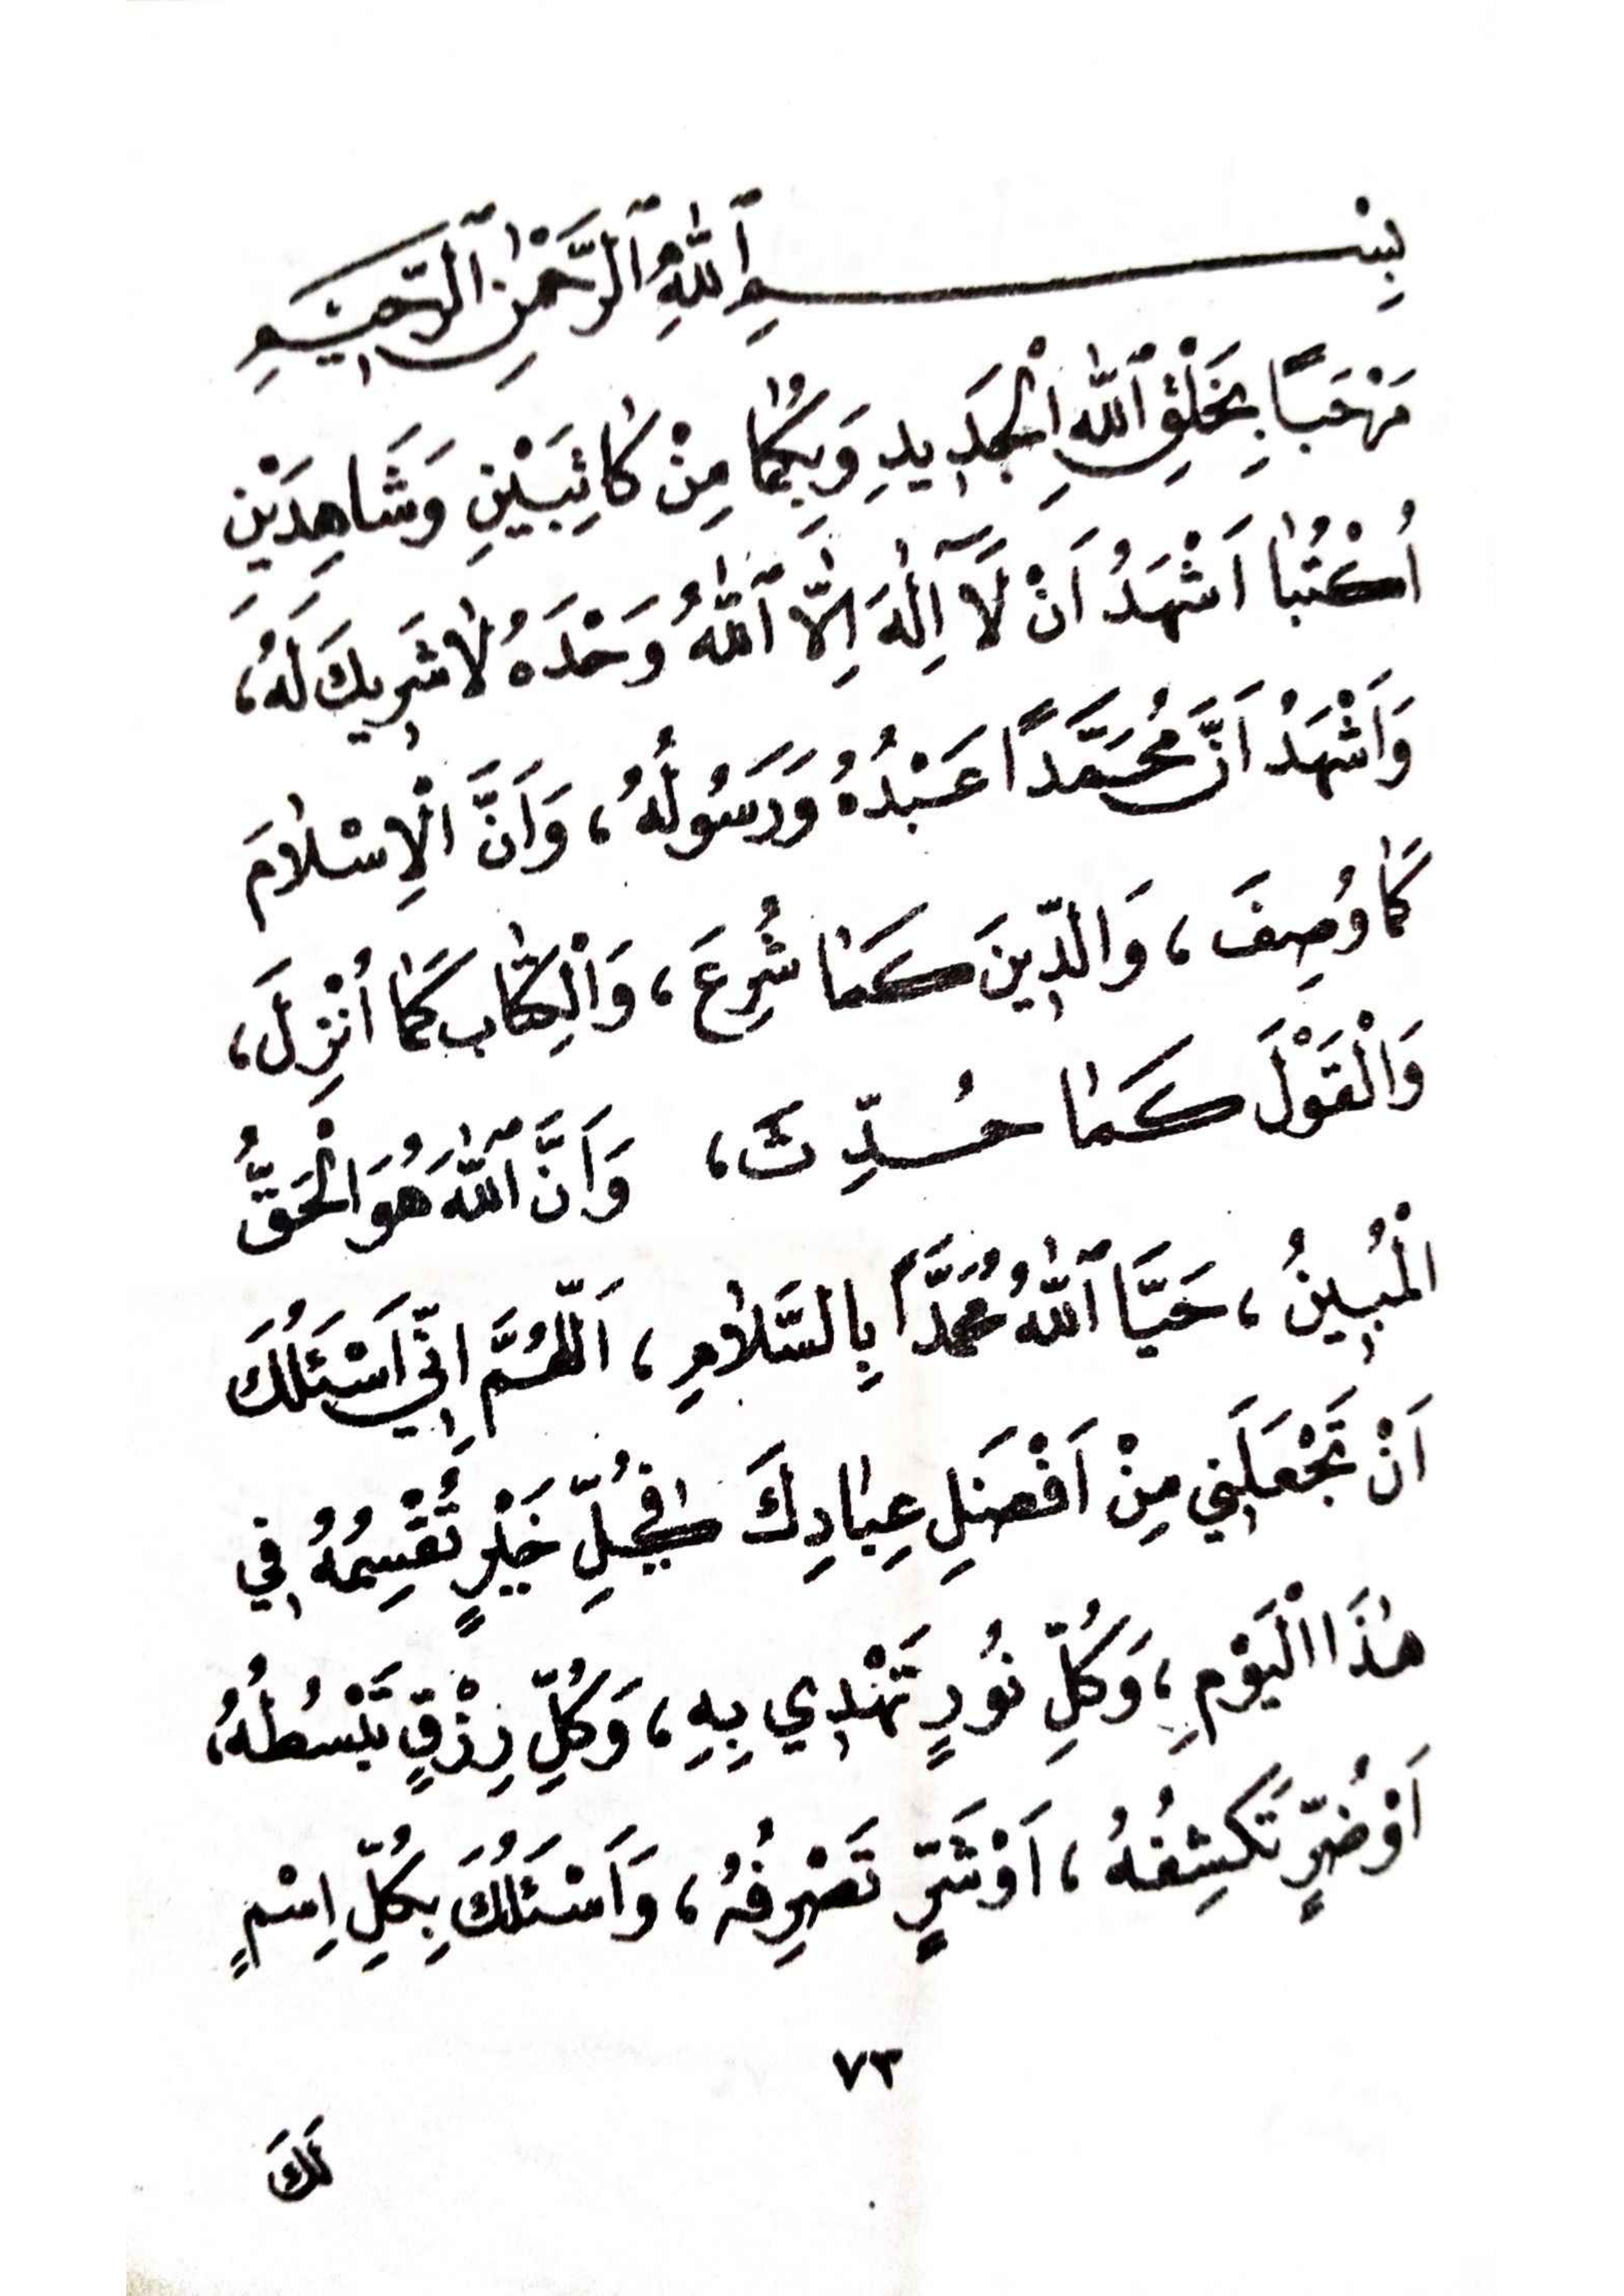 بِسْمِ ٱللّٰهِ ٱلرَّحْمٰنِ ٱلرَّحِيْمِ
مَرْحَبًا بِخَلْقِ ٱللّٰهِ الْجَدِيدِ وَبِكُمٰا مِنْ كٰاتِبَيْنِ وَشَاهِدَيْنِ
اُكْتُبٰا اَشْهَدُ اَنْ لَآ اِلٰهَ اِلَّا ٱللّٰهُ وَحْدَهُ لٰا شَرِيكَ لَهُ،
وَاَشْهَدُ اَنَّ مُحَمَّدًا عَبْدُهُ وَرَسُولُهُ، وَاَنَّ الْاِسْلٰامَ
كَمٰا وُصِفَ، وَالدِّينَ كَمٰا شُرِعَ، وَالْكِتٰابَ كَمٰا اُنْزِلَ،
وَالْقَوْلَ كَمٰا حُدِّثَ، وَاَنَّ ٱللّٰهَ هُوَ الْحَقُّ
الْمُبِينُ، حَيَّا ٱللّٰهُ مُحَمَّدًا بِالسَّلٰامِ، اَللّٰهُمَّ اِنِّي اَسْئَلُكَ
اَنْ تَجْعَلَنِي مِنْ اَفْضَلِ عِبٰادِكَ فِي كُلِّ خَيْرٍ تُقْسِمُهُ فِي
هٰذَا الْيَوْمِ، وَكُلِّ نُورٍ تَهْدِي بِهِ، وَكُلِّ رِزْقٍ تَبْسُطُهُ،
اَوْ ضُرٍّ تَكشِفُهُ، اَوْ شَرٍّ تَصْرِفُهُ، وَاَسْئَلُكَ بِكُلِّ اِسْمٍ
٧٣
لَكَ